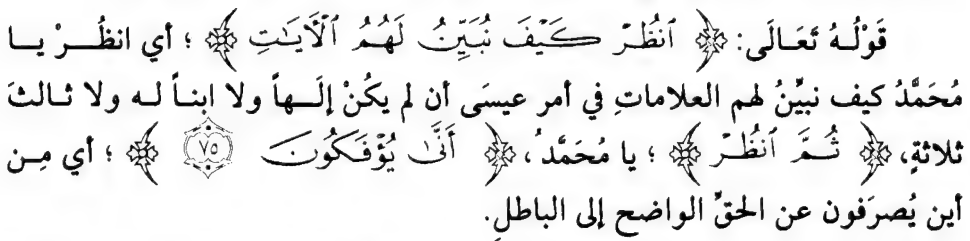 قَوْلُهُ تَعَالَى: ﴿ ٱنظُرْ كَيْفَ نُبَيِّنُ لَهُمُ ٱلْآيَٰتِ ﴾ ؛ أي انظُرْ يا
مُحَمَّدُ كيف نبيِّنُ لهم العلاماتِ في أمر عيسَى أن لم يكُنْ إلَهاً ولا ابناً له ولا ثالثَ
ثلاثةٍ، ﴿ ثُمَّ ٱنظُرْ ﴾ ؛ يا مُحَمَّدُ، ﴿ أَنَّىٰ يُؤْفَكُونَ ٧٥ ﴾ ؛ أي مِن
أين يُصرَفون عن الحقِّ الواضح إلى الباطلِ.